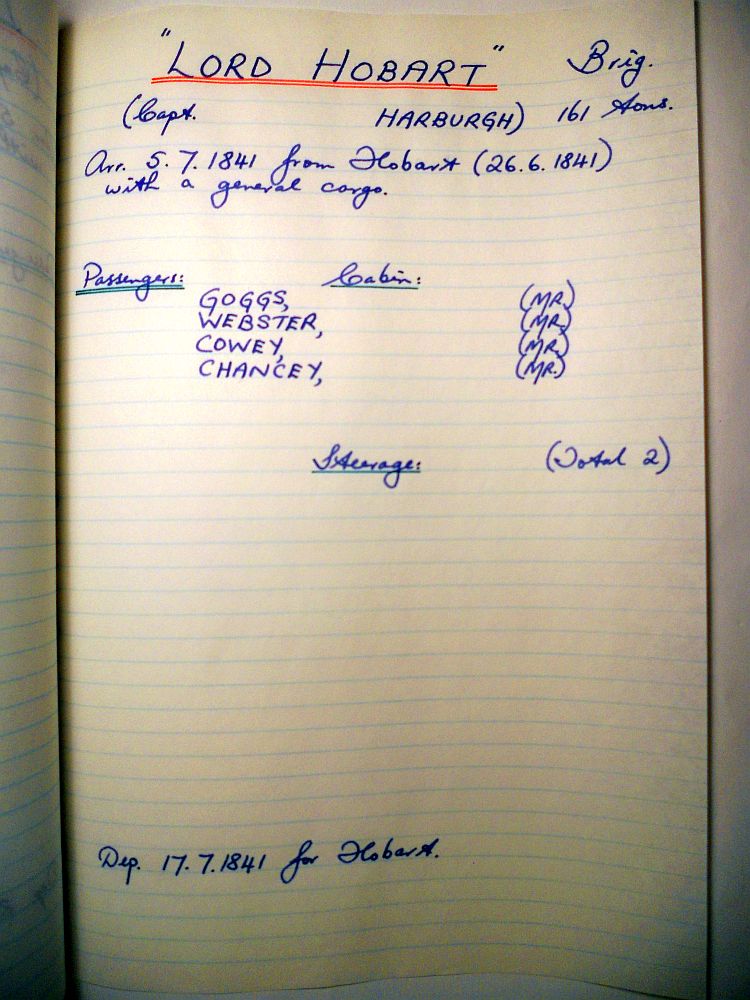 "LORD HOBART" Brig.
(Capt. HARBURGH) 161 tons.
Arr. 5.7.1841 from Hobart (26.6.1841)
with a general cargo.
Passengers: Cabin:
GOGGS, (MR.)
WEBSTER, (MR.)
COWEY, (MR.)
CHANCEY, (MR.)
Steerage: (Total 2)
Dep. 17.7.1841 for Hobart.